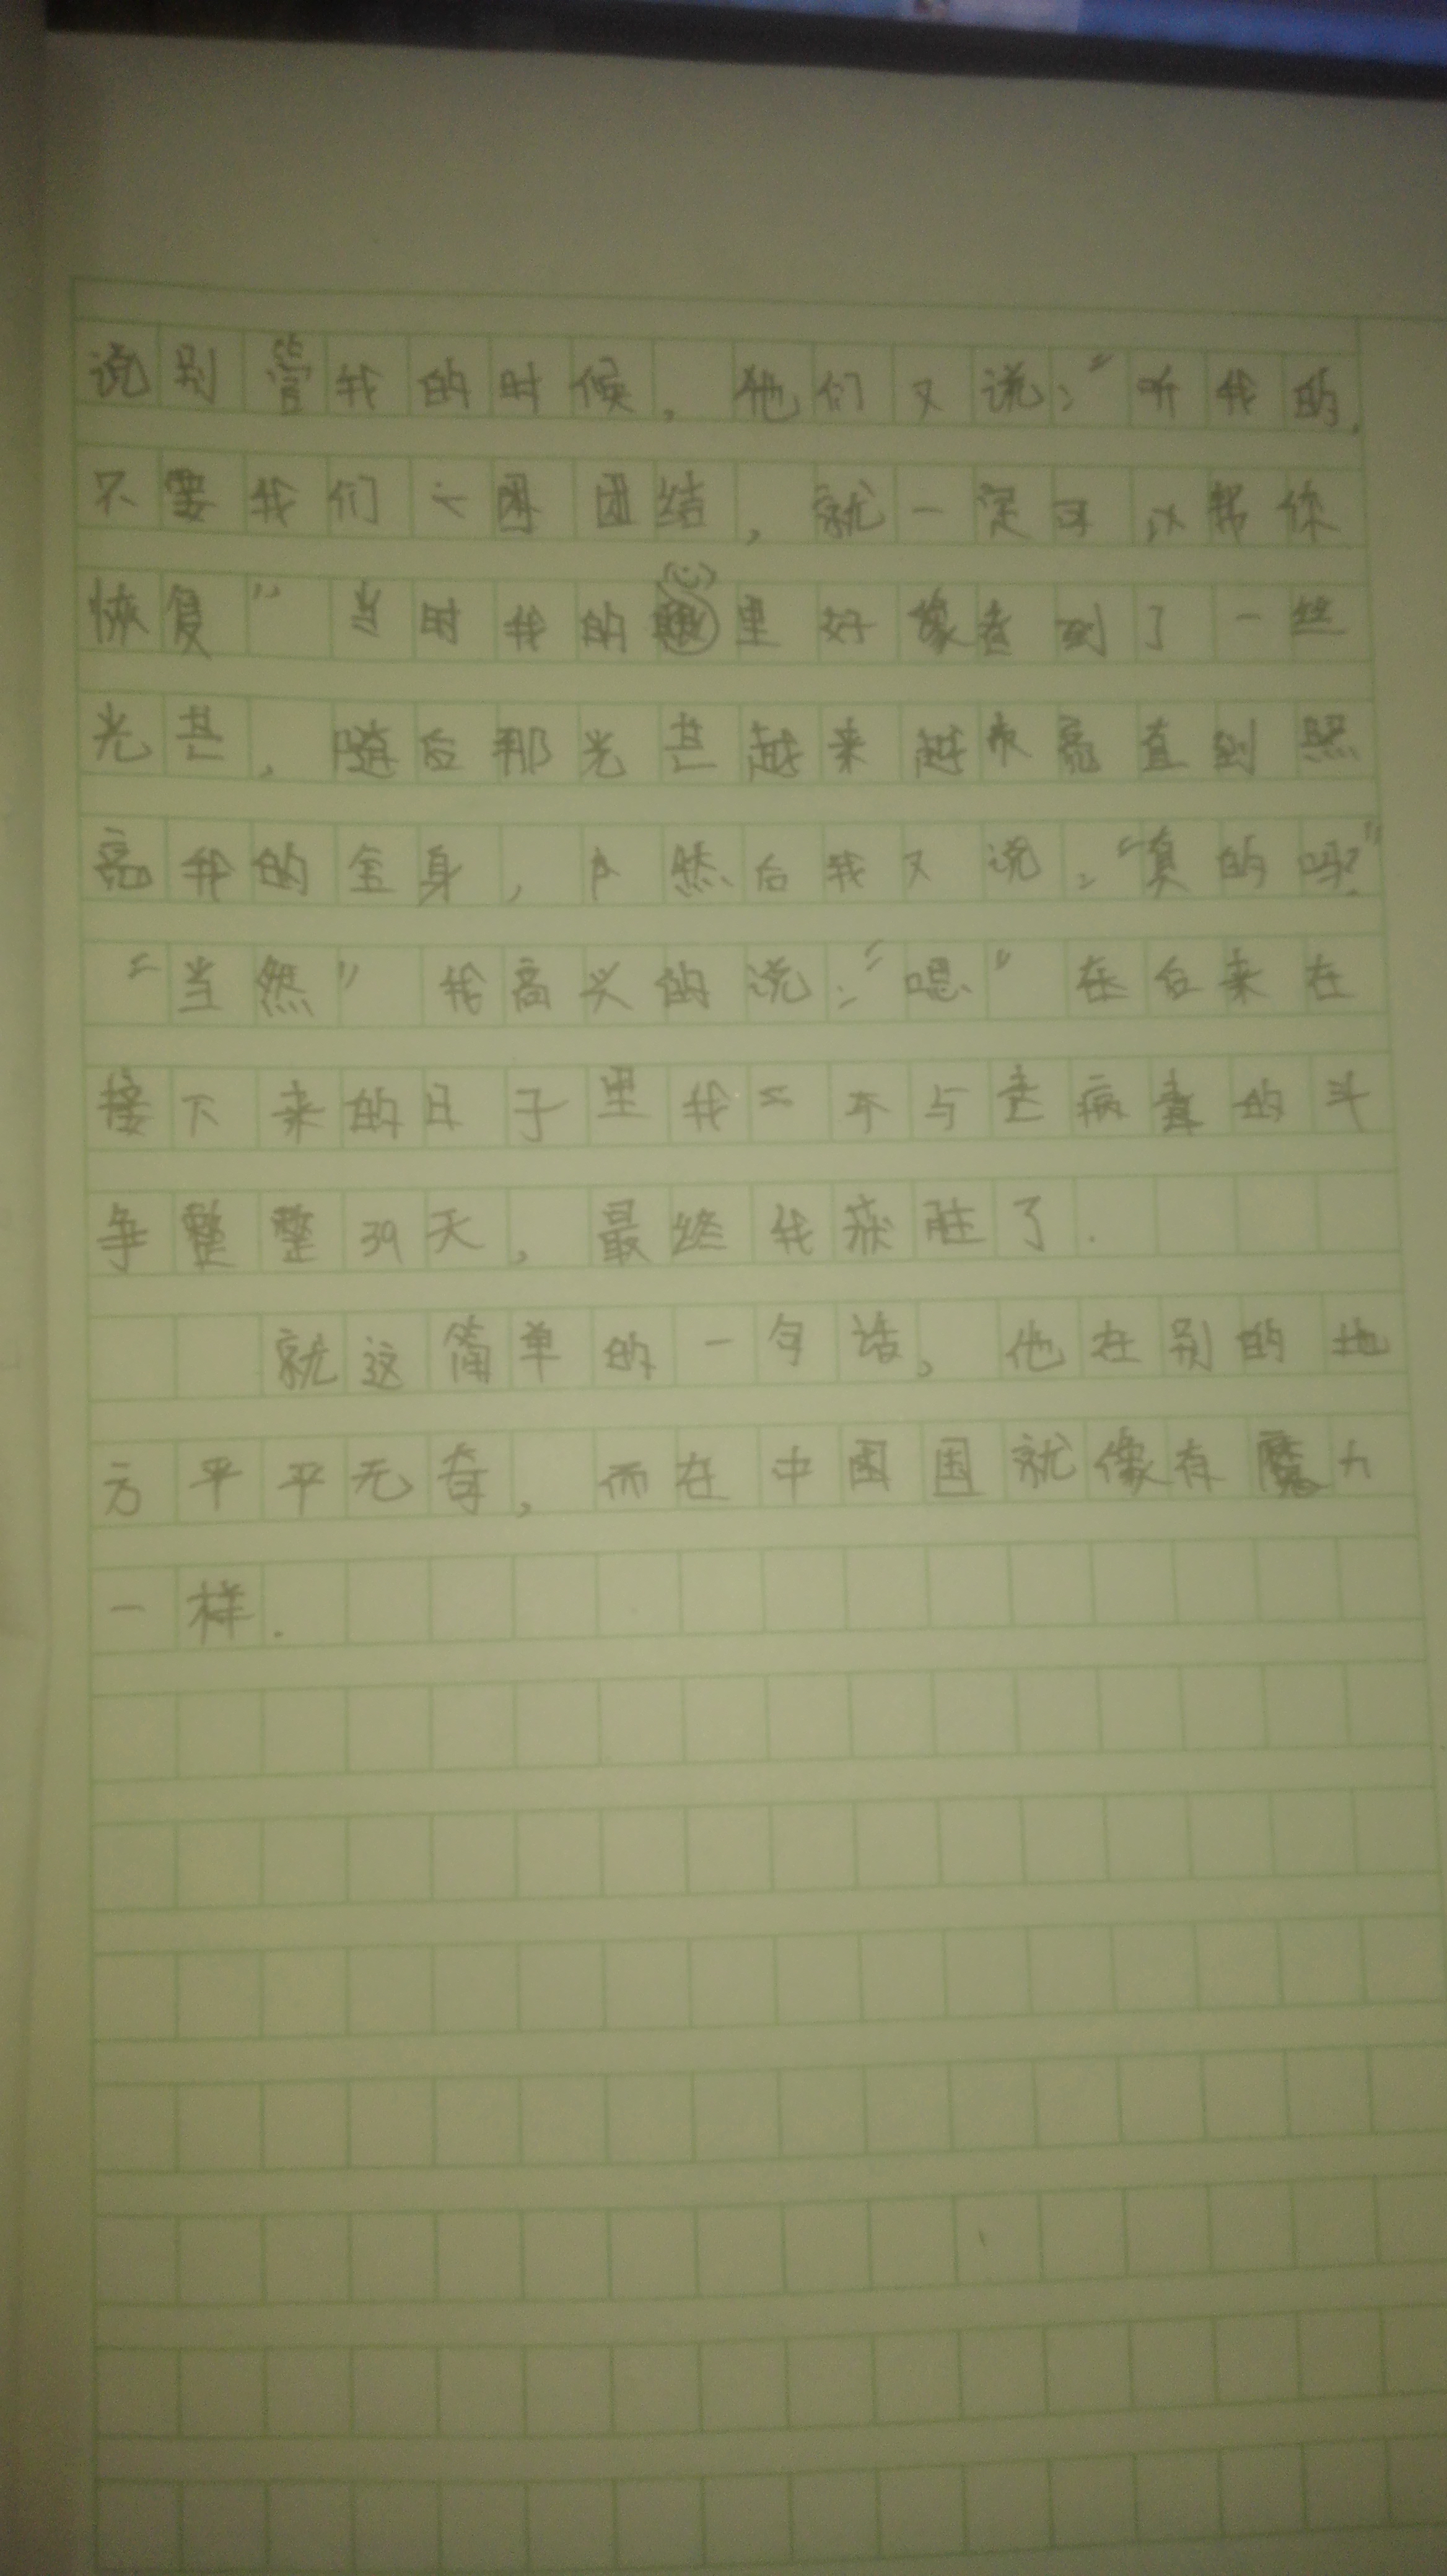 说别管我的时候，他们又说：“听我的，
不要我们一团团结，就一定可以帮你
恢复”当时我的里好像看到了一丝
光芒，随后那光芒越来越来亮直到照
亮我的全身，然后我又说：“真的吗？”
“当然”我高兴的说：“嗯”在后来在
接下来的日子里我二不与走病毒的斗
争整整39天，最终我获胜了.
就这简单的一句话，他在别的地
方平平无奇，而在中国国就像有魔力
一样.